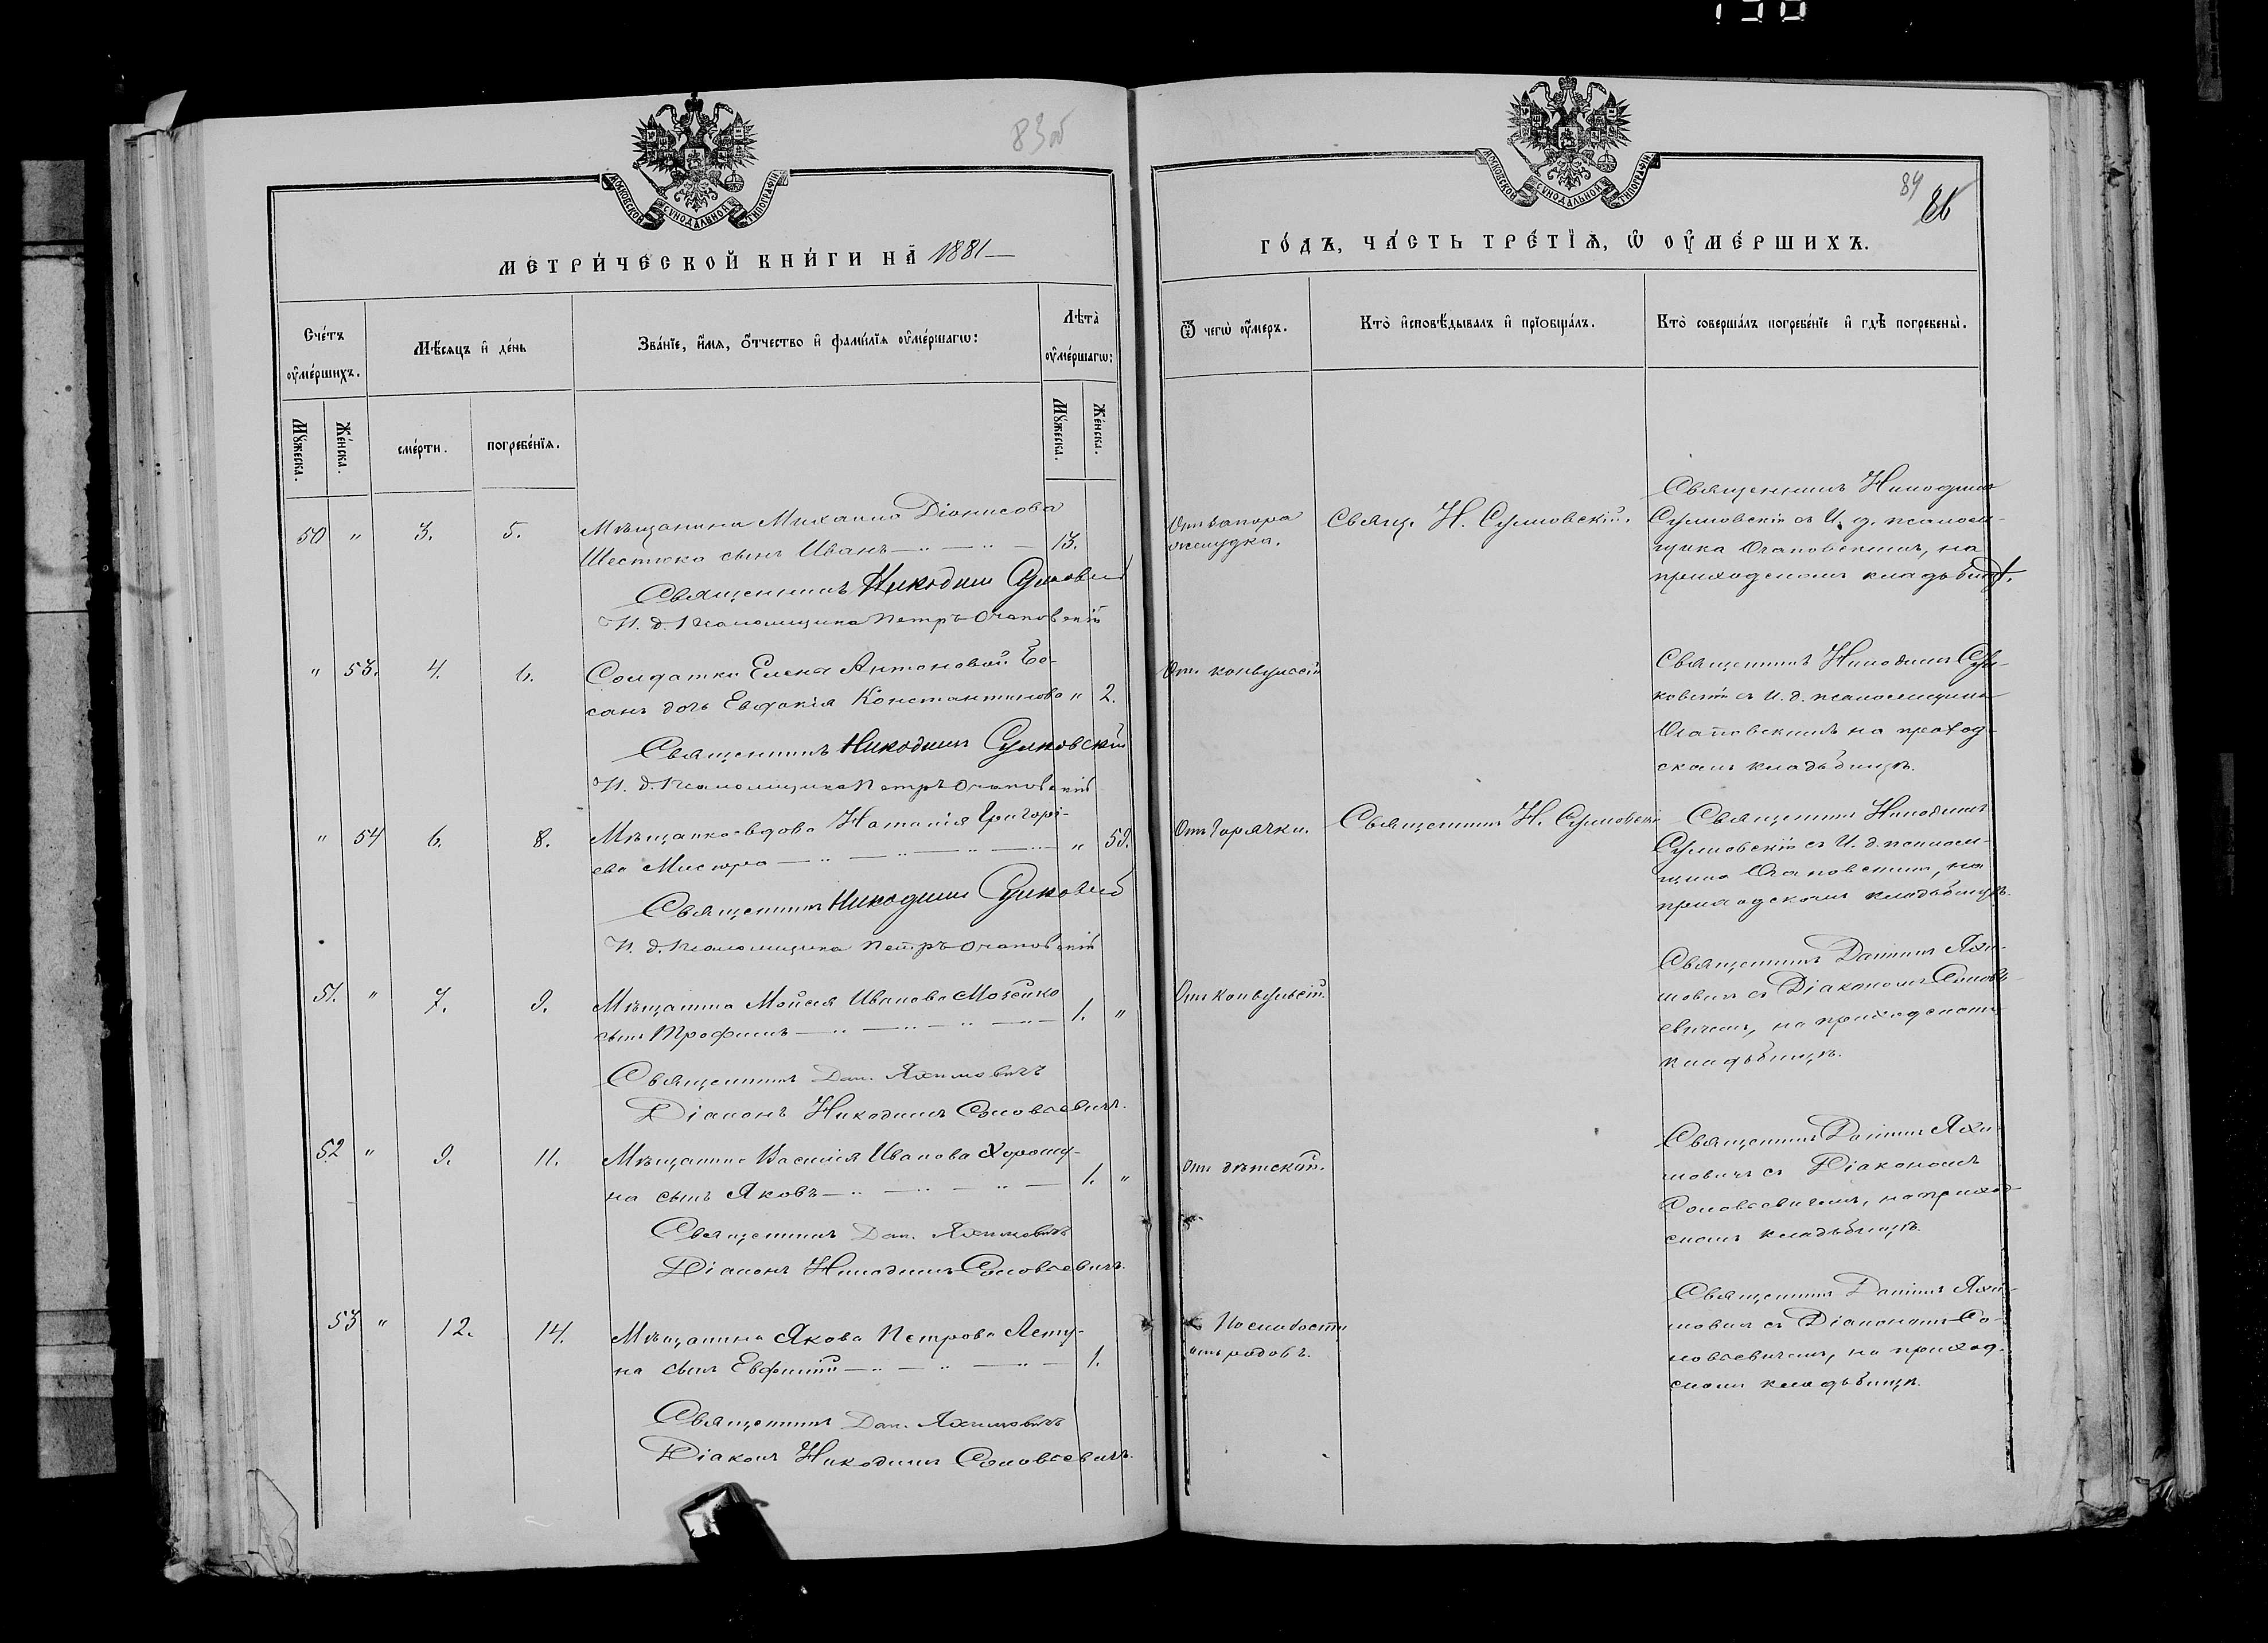 130
83об
МОСКОВСКОЙ СѴНОДАЛЬНОЙ ТИПОГРАФІИ
МЕТРИ́ЧЕСКОЙ КНИ́ГИ НА̀ 1881
Сче́тъ оу҆ме́ршихъ.
Мѣ́сяцъ и҆ де́нь
Зва́нїе, и҆́мя, ѻ҆́тчество и҆ фами́лїя оу҆ме́ршагѡ:
Лѣта̀ оу҆ме́ршагѡ:
Мꙋ́жеска.
Же́нска.
сме́рти.
погребе́нїя.
Мꙋ́жеска.
Же́нска.
50 " 3. 5. Мѣщанина Михаила Діонисова
Шестюка сынъ Иванъ 13.
Священникъ Никодим Сулковскій
И. д. Псаломщика Петръ Очаповскій
" 53. 4. 6. Солдатки Елены Антоновой Бо-
санъ дочь Евфокія Константинова " 2.
Священникъ Никодим Сулковскій
И. д. Псаломщика Петръ Очаповскій
" 54 6. 8. Мѣщанка-вдова Наталія Григорі-
ева " 59.
Священникъ Никодим Сулковскій
И. д. Псаломщика Петръ Очаповскій
51. " 7. 9. Мѣщанина Моисея Иванова
сынъ Трофимъ 1. "
Священникъ Дан. Яхимовичъ
Діаконъ Никодимъ Соловьевичъ.
52 " 9. 11. Мѣщанина Василія Иванова Хорошу-
на сынъ Яковъ 1. "
Священникъ Дан. Яхимовичъ
Діаконъ Никодимъ Соловьевичъ.
53 " 12. 14. Мѣщанина Якова Петрова Лету-
на сынъ Евфимій 1.
Священникъ Дан. Яхимовичъ
Діаконъ Никодимъ Соловьевичъ.
МОСКОВСКОЙ СѴНОДАЛЬНОЙ ТИПОГРАФІИ
84
86
ГО́ДЪ, ЧА́СТЬ ТРЕ́ТЇѦ, Ѡ҆ ОУ҆МЕ́РШИХЪ.
Ѿ чегѡ̀ оу҆́меръ.
Кто̀ и҆сповѣ́дывалъ и҆ прїѡбща́лъ.
Кто̀ соверша́лъ погребе́нїе и҆ гдѣ̀ погребены̀.
Отъ запора
желудка.
Свящ. Н. Сулковскій.
Священникъ Никодимъ
Сулковскій съ И. д. псалом-
щика Очаповскимъ, на
приходскомъ кладбищѣ.
Отъ конвульсій
Священникъ Никодимъ Сул-
ковскій съ И. д. псаломщика
Очаповскимъ на приход-
скомъ кладьбищѣ.
Отъ горячки.
Священникъ Н. Сулковскій
Священникъ Никодимъ
Сулковскій съ И. д. псалом-
щика Очаповскимъ, на
приходскомъ кладьбищѣ.
Отъ конвульсій.
Священникъ Даниилъ Яхи-
мовичъ съ Діакономъ Соловь-
евичемъ, на приходскомъ
кладьбищѣ.
Отъ дѣтской.
Священникъ Даниилъ Яхи-
мовичъ съ Діакономъ
Соловьевичемъ, на приход-
скомъ кладьбищѣ.
По слабости
отъ родовъ.
Священникъ Даниилъ Яхи-
мовичъ съ Діакономъ Со-
ловьевичемъ, на приход-
скомъ кладьбищѣ.